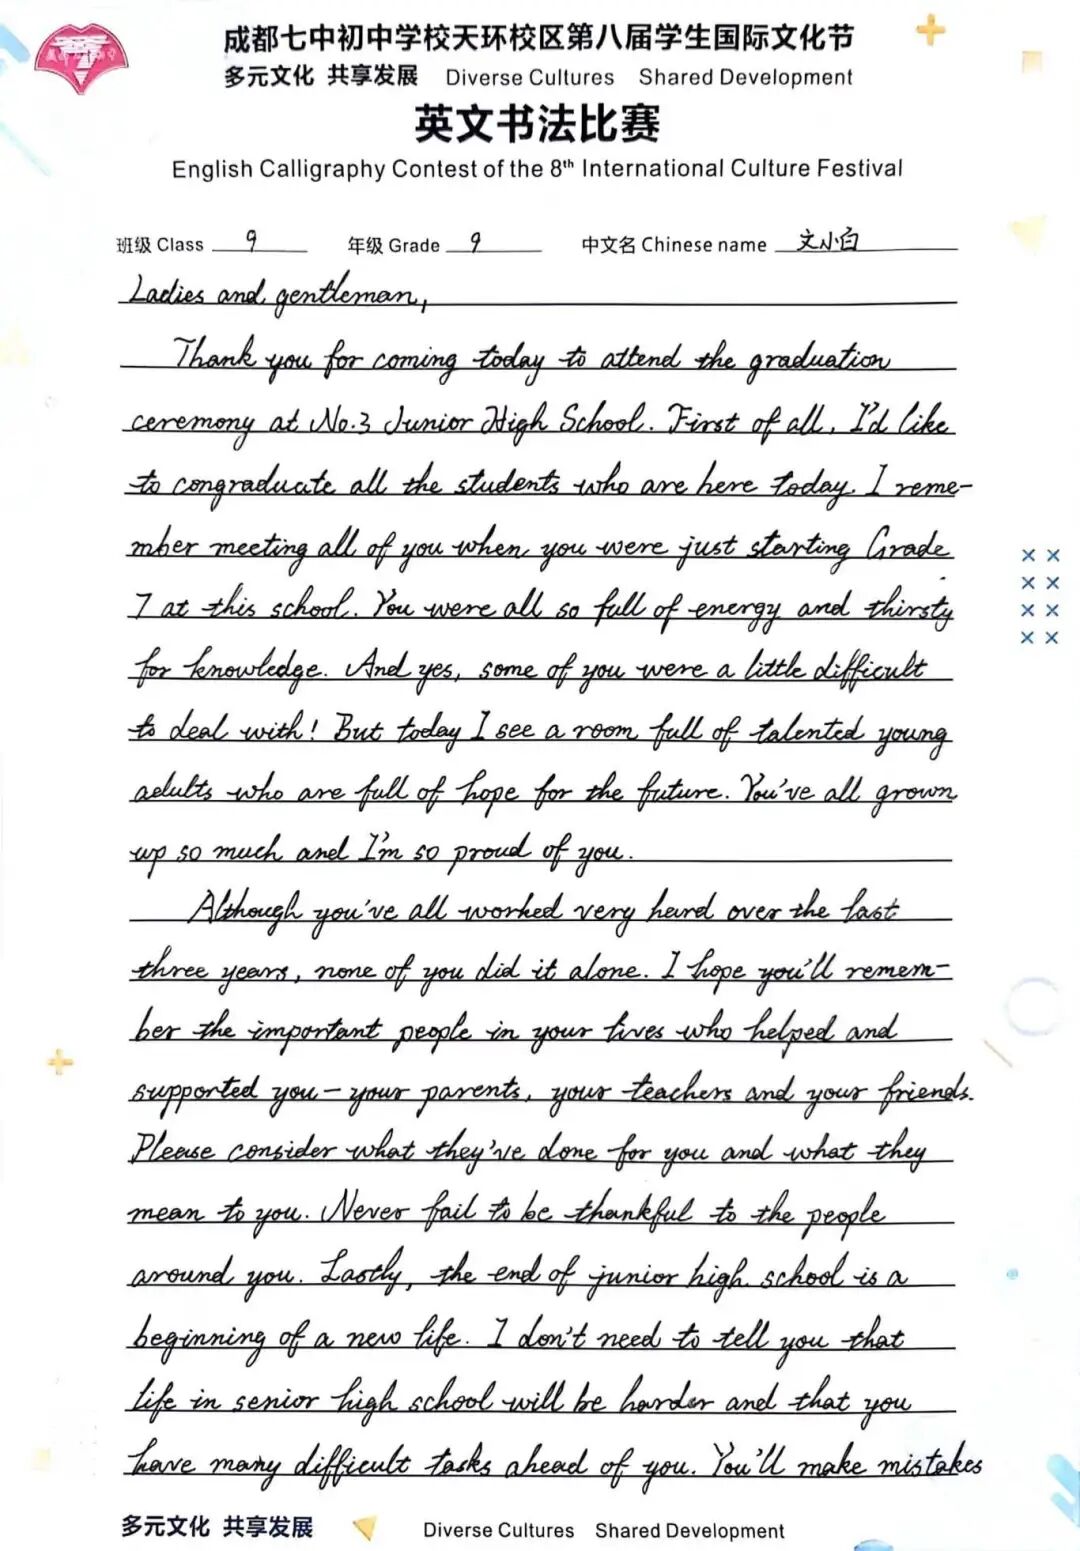 成都七中初中学校天环校区第八届学生国际文化节
多元文化 共享发展 Diverse Cultures Shared Development
英文书法比赛
English Calligraphy Contest of the 8th International Culture Festival
班级 Class 9 年级 Grade 9 中文名 Chinese name 文小白
Ladies and gentleman,
Thank you for coming today to attend the graduation
ceremony at No.3 Junior High School. First of all, I'd like
to congraduate all the students who are here today. I reme-
mber meeting all of you when you were just starting Grade
7 at this school. You were all so full of energy and thirsty
for knowledge. And yes, some of you were a little difficult
to deal with! But today I see a room full of talented young
adults who are full of hope for the future. You've all grown
up so much and I'm so proud of you.
Although you've all worked very hard over the last
three years, none of you did it alone. I hope you'll remem-
ber the important people in your lives who helped and
supported you — your parents, your teachers and your friends.
Please consider what they've done for you and what they
mean to you. Never fail to be thankful to the people
around you. Lastly, the end of junior high school is a
beginning of a new life. I don't need to tell you that
life in senior high school will be harder and that you
have many difficult tasks ahead of you. You'll make mistakes
多元文化 共享发展 Diverse Cultures Shared Development